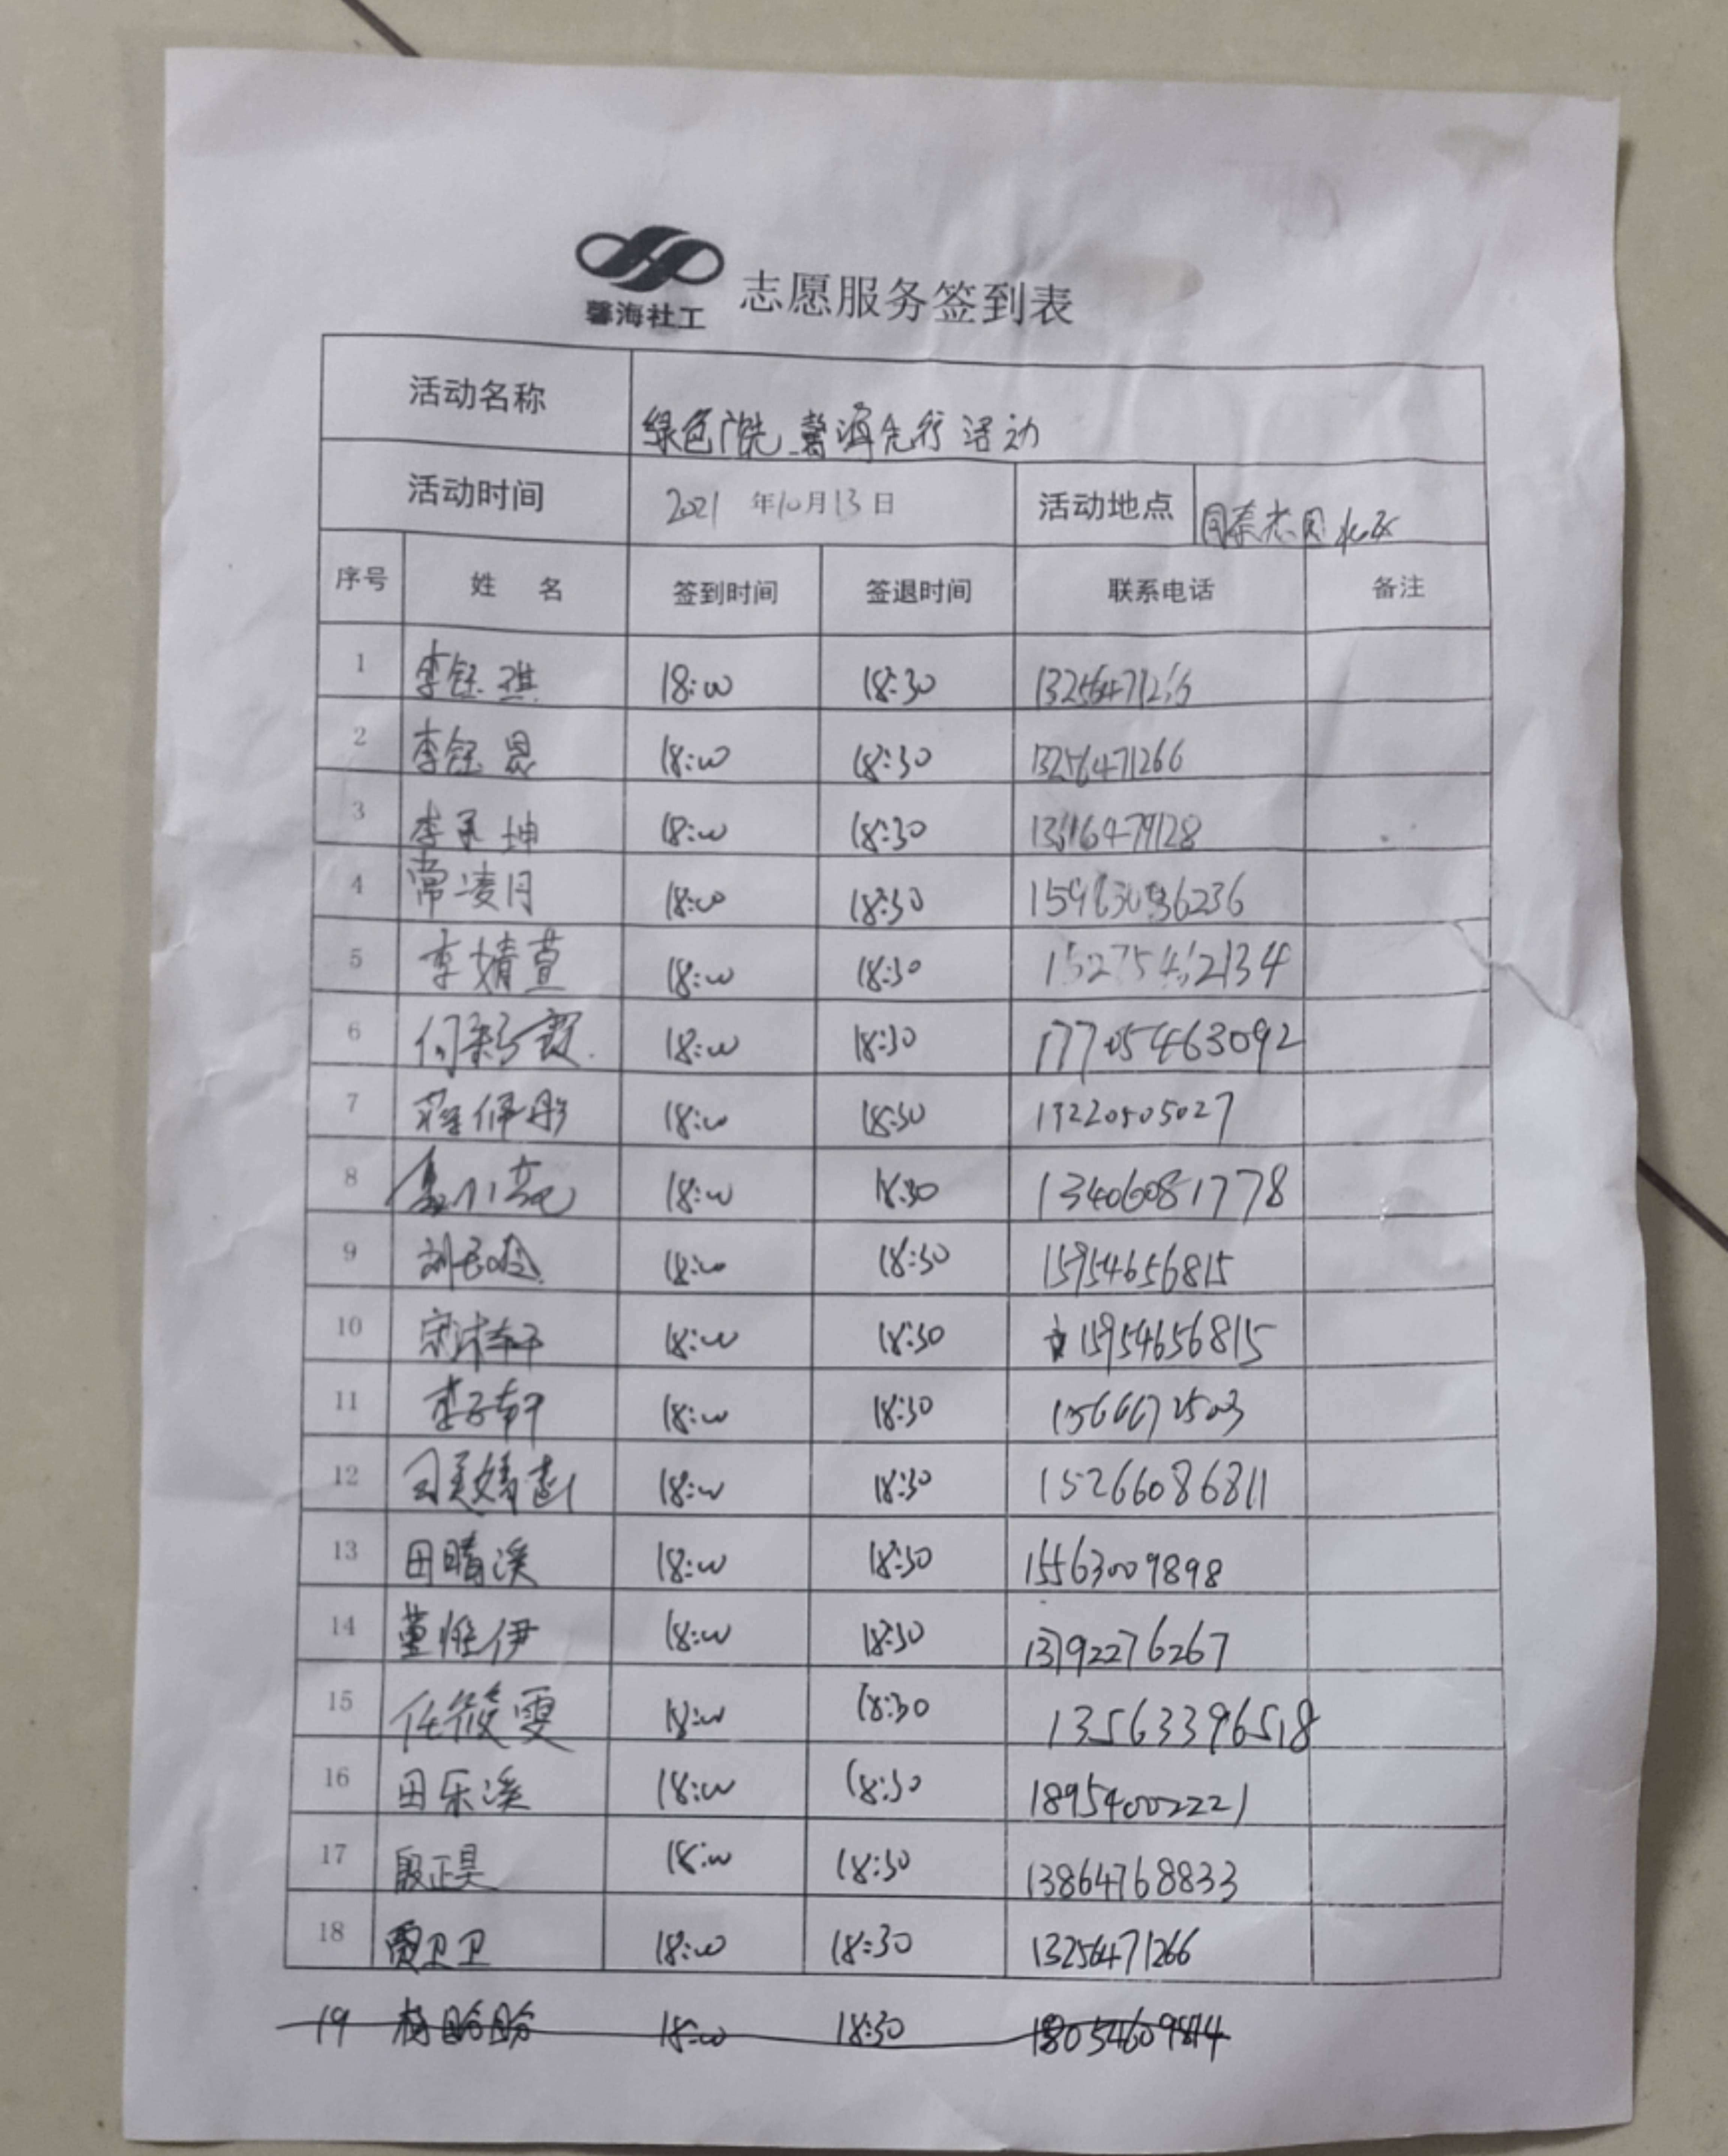 馨海社工 志愿服务签到表
活动名称 绿色 馨海先行活动
活动时间 2021 年10月13日 活动地点
序号 姓 名 签到时间 签退时间 联系电话 备注
1 李钰琪 18:00 18:30 13256471266
2 李钰 18:00 18:30 13256471266
3 李 坤 18:00 18:30
4 常凌月 18:00 18:30
5 李婧萱 18:00 18:30
6 18:00 18:30 17705463092
7 18:00 18:30 13220505027
8 18:00 18:30 13406081778
9 18:00 18:30 15954656815
10 宋沐轩 18:00 18:30 15954656815
11 李子轩 18:00 18:30
12 18:00 18:30 15266086811
13 田晴溪 18:00 18:30 15563009898
14 董惟伊 18:00 18:30 13792276267
15 任筱雯 18:00 18:30 13563396518
16 田乐溪 18:00 18:30 18954002221
17 殷正昊 18:00 18:30 13864768833
18 贾卫卫 18:00 18:30 13256471266
19 盼盼 18:00 18:30 18054609814